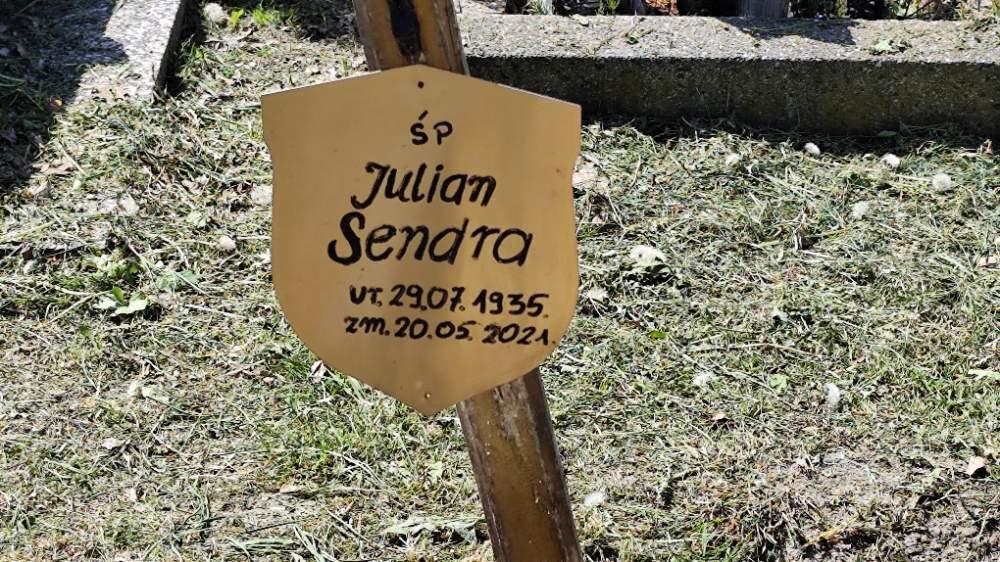 ŚP
Julian
Sendra
ur. 29.07. 1935.
zm. 20.05. 2021.